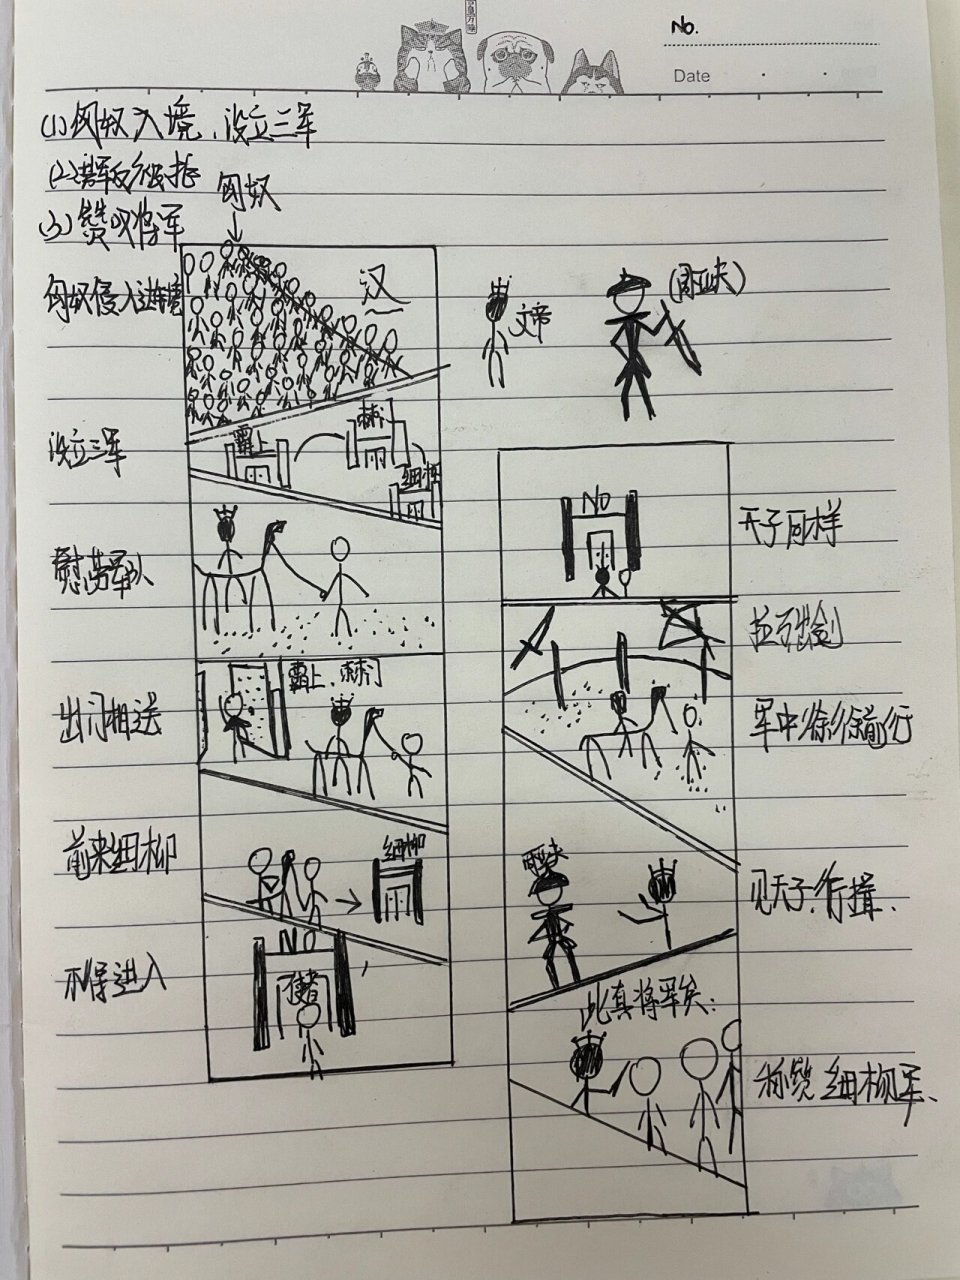 No.
Date
(1)匈奴入境、设立三军
(3)赞叹将军
匈奴
匈奴侵入边境
汉
文帝
(周亚夫)
设立三军
霸上
棘门
细柳
慰劳军队
霸上、棘门
出门相送
前来细柳
细柳
不得进入
NO
使者
NO
天子同样
拉弓出剑
军中徐徐前行
周亚夫
见天子、行揖、
此真将军矣:
称赞细柳军、